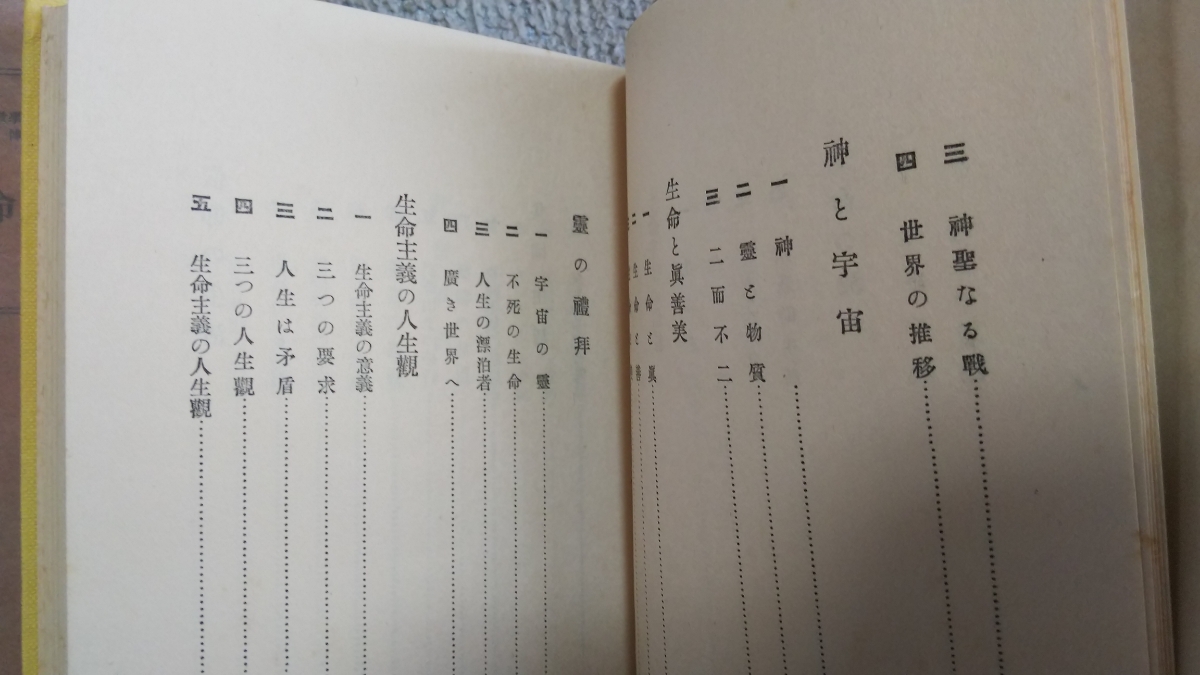 三 神聖なる戰
四 世界の推移
神と宇宙
一 神
二 靈と物質
三 二而不二
生命と眞善美
一 生命と眞
二 生命と善
靈の禮拜
一 宇宙の靈
二 不死の生命
三 人生の漂泊者
四 廣き世界へ
生命主義の人生觀
一 生命主義の意義
二 三つの要求
三 人生は矛盾
四 三つの人生觀
五 生命主義の人生觀